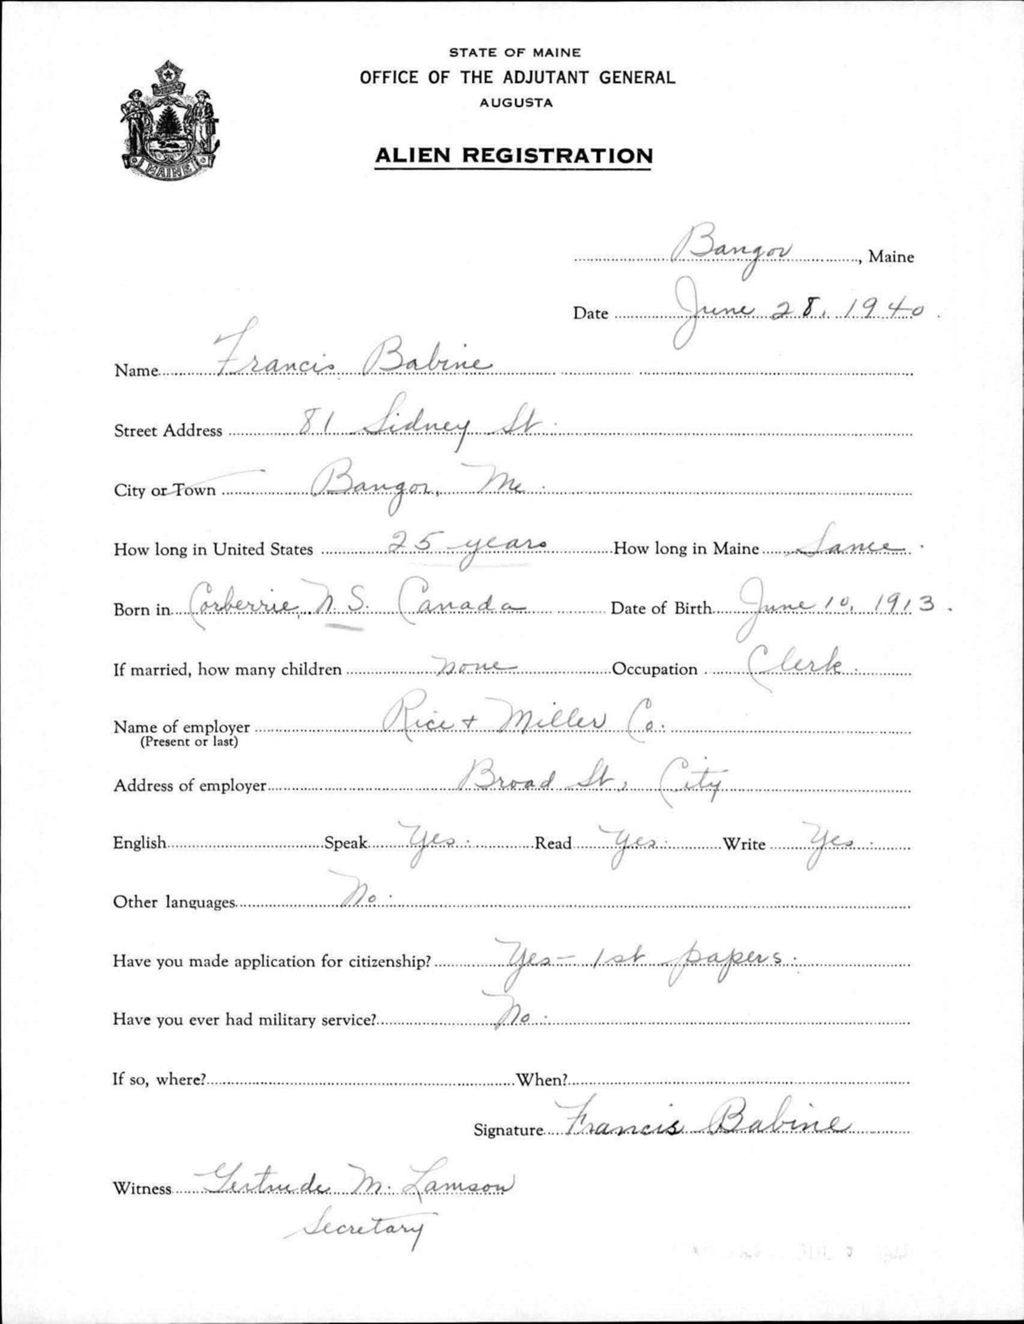 STATE OF MAINE
OFFICE OF THE ADJUTANT GENERAL
AUGUSTA
ALIEN REGISTRATION
MAINE
Bangor, Maine
Date June 28, 1940.
Name Francis Babine
Street Address 81 Sidney St.
City or Town Bangor, Me.
How long in United States 25 years How long in Maine Same.
Born in Corberrie, N.S. Canada Date of Birth June 10, 1913.
If married, how many children none Occupation Clerk.
Name of employer Rice + Miller Co.
(Present or last)
Address of employer Broad St, City
English Speak Yes. Read Yes. Write Yes.
Other languages No.
Have you made application for citizenship? Yes - 1st papers.
Have you ever had military service? No.
If so, where? When?
Signature Francis Babine
Witness Gertrude M. Lamson
Secretary